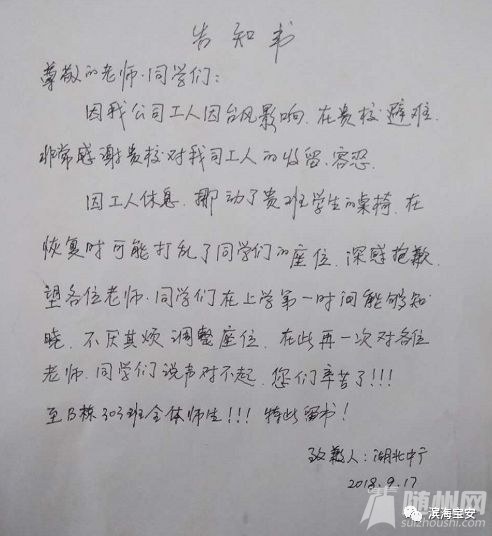 告知书
尊敬的老师.同学们:
因我公司工人因台风影响.在贵校避难.
非常感谢贵校对我司工人的收留.容忍.
因工人休息.挪动了贵班学生的桌椅.在
恢复时可能打乱了同学们的座位.深感抱歉.
望各位老师.同学们在上学第一时间能够知
晓.不厌其烦调整座位.在此再一次对各位
老师.同学们说声对不起.您们辛苦了!!!
至B栋303班全体师生!!!特此留书!
致歉人:湖北中宁
2018.9.17
随州网
suizhoushi.com
滨海宝安